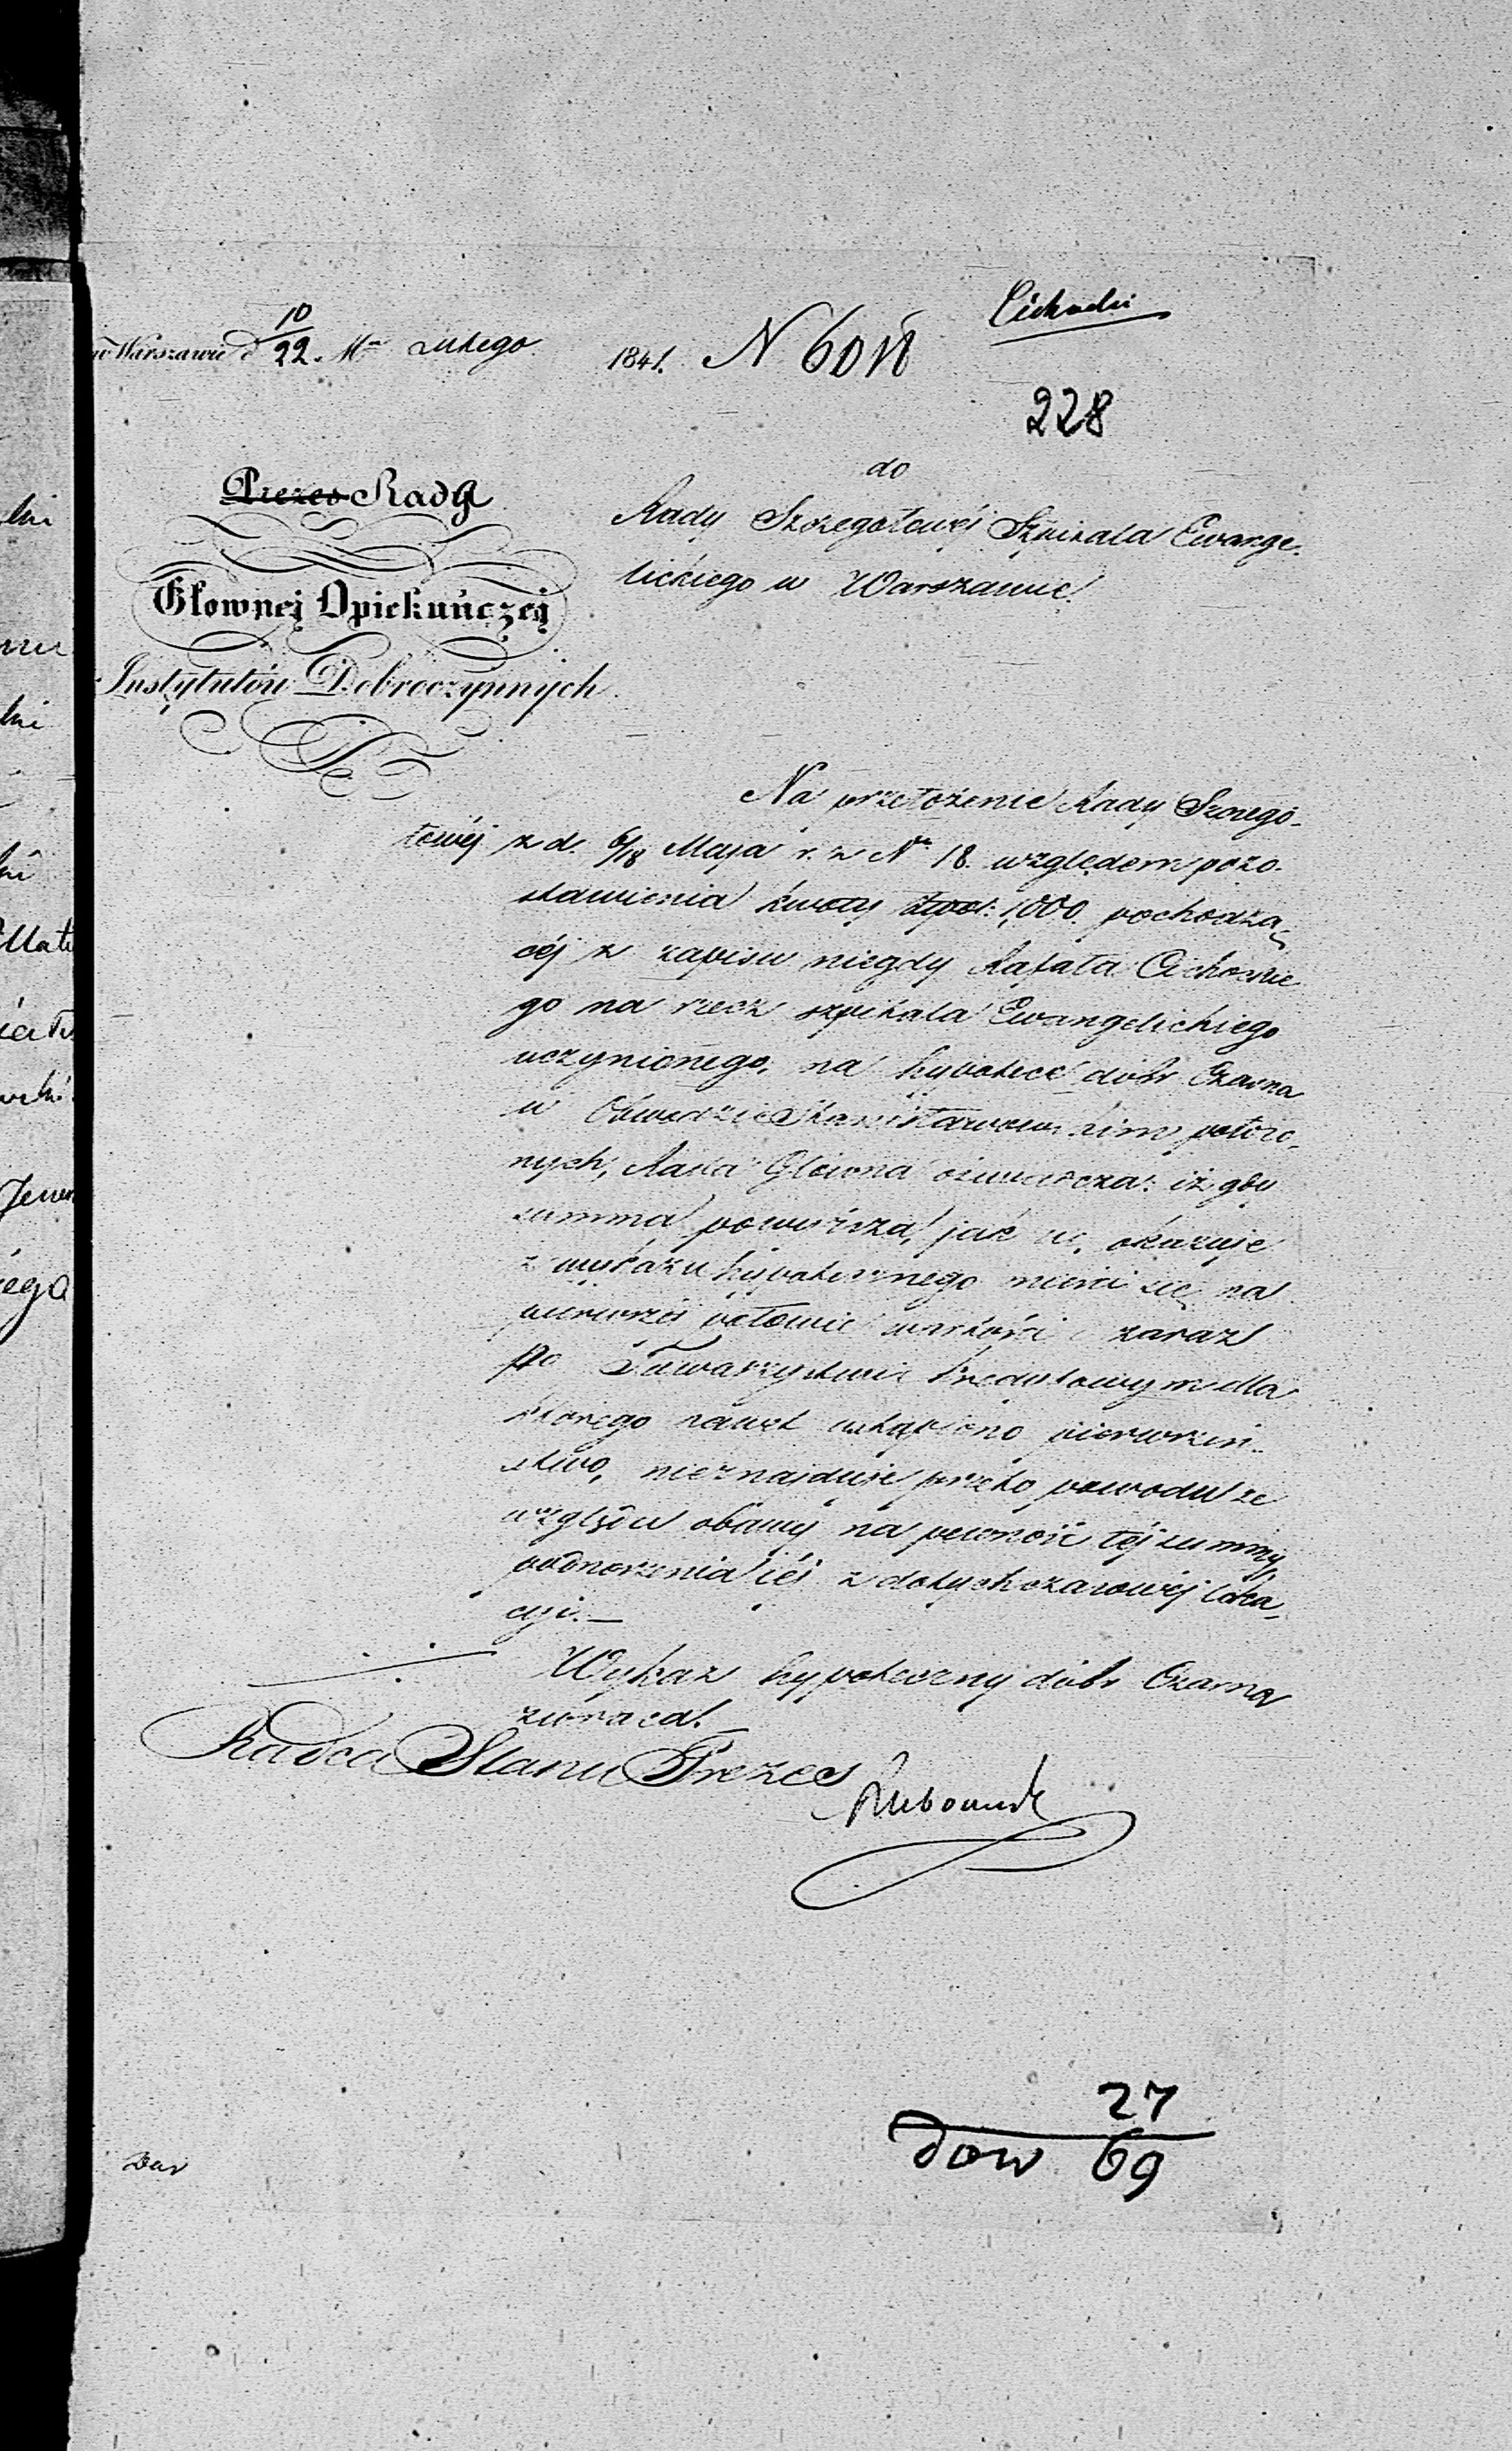 Cichocki
w Warszawie d 10/22. Mca Lutego 1841. N 6018
228
Prezes Rady
Głownej Opiekuńczej
Instytutów Dobroczynnych
do
Rady Szczegołowéj Szpitala Ewange-
lickiego w Warszawie.
Na przełożenie Rady Szczegó-
łowéj z d. 6/18 Maja r. z No 18. względem pozo-
stawienia kwoty złpol: 1000. pochodzą-
céj z zapisu niegdy Rafała Cichockie
go na rzecz szpitala Ewangelickiego
uczynionego, na hypotece dóbr Czarna
w Obwodzie Stanisławowskim położo-
nych, Rada Główna oświadcza: iż gdy
summa powyższa, jak się okazuje
z wykazu hypotecznego mieści się na
pierwszéj połowie wartości i zaraz
po Towarzystwie Kredytowym dla
którego nawet ustąpiono pierwszeń-
stwo, nieznajduje przeto powodu ze
względu obawy na pewność téj summy,
podnoszenia jéj z dotychczasowéj loka-
cyi.—
Wykaz hypoteczny dóbr Czarna
zwraca.
Radca Stanu Prezes
27
Dow 69